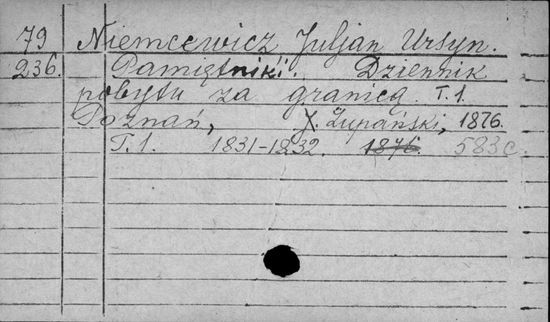 79 Niemcewicz Juljan Ursyn.
236. Pamiętniki. Dziennik
pobytu za granicą. T.1.
Poznań, J. Żupański, 1876.
T.1. 1831-1832. 1876. 583c.